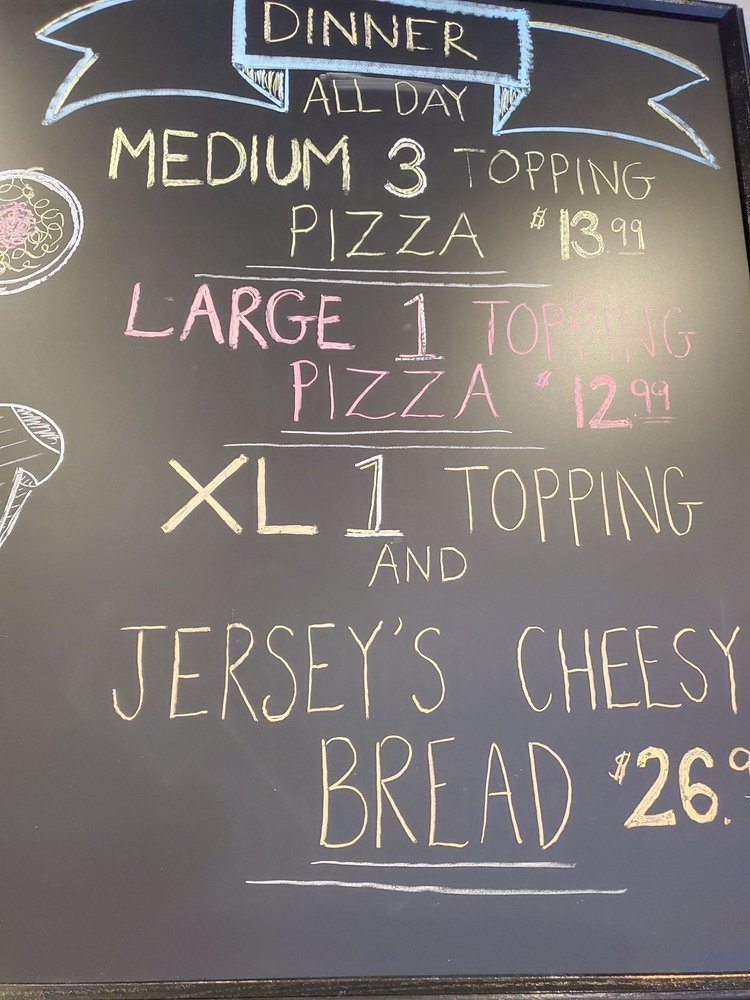 DINNER
ALL DAY
MEDIUM 3 TOPPING
PIZZA $13.99
LARGE 1 TOPPING
PIZZA $12.99
XL 1 TOPPING
AND
JERSEY'S CHEESY
BREAD $26.